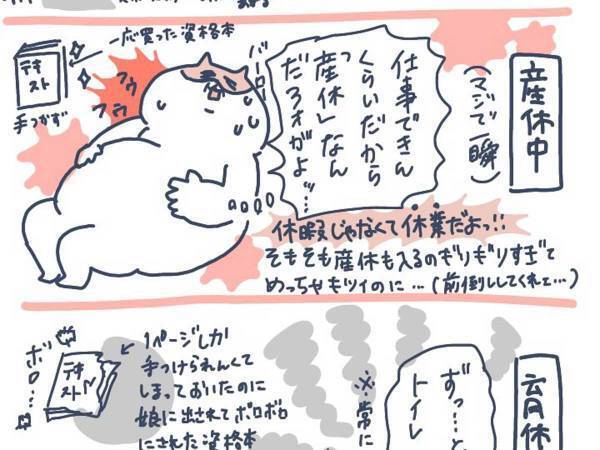 産休中
(マジで一瞬)
仕事できん
くらいだから
「産休」なん
だろオがよッ…
バーロー
フゥ
フゥ
一応買った資格本
テキ
スト
手つかず
休暇じゃなくて休業だよっ!!
そもそも産休も入るのギリギリすぎて
めっちゃキツイのに…(前倒ししてくれ…)
育休
ずっ…と
トイレ
※常に
1ページしか
手つけられんくて
しまっておいたのに
娘に出されてボロボロ
にされた資格本
テキ
スト
ボロ…